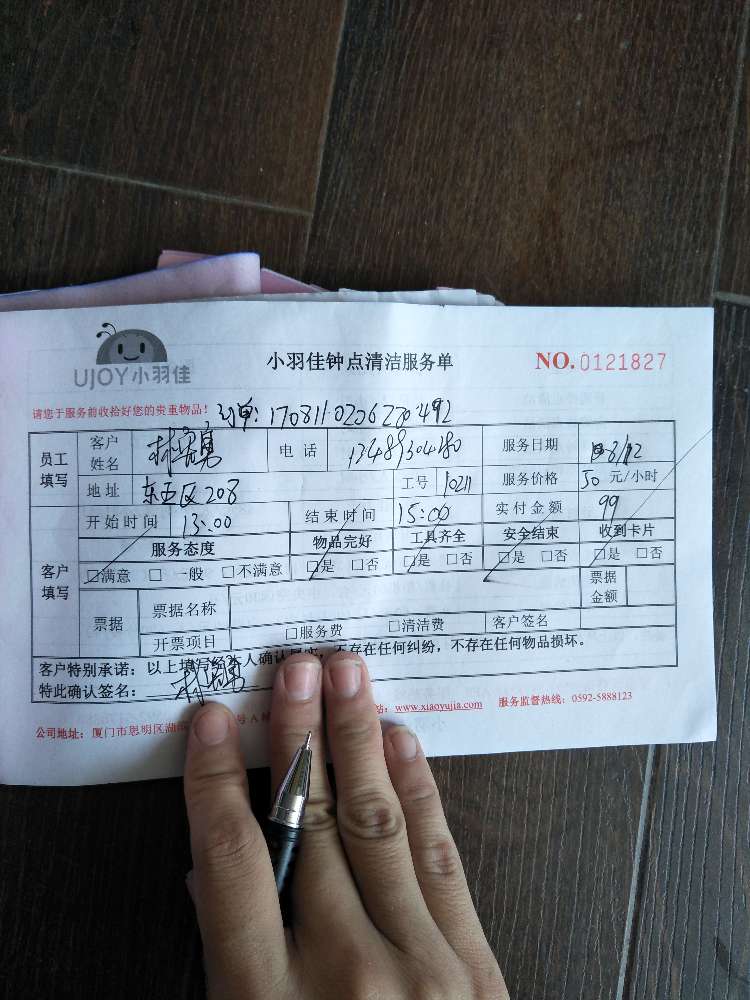 UJOY小羽佳
小羽佳钟点清洁服务单
NO.0121827
请您于服务前收拾好您的贵重物品！
订单:170811·0206280492
员工填写 客户姓名 林 勇 电话 13489304280 服务日期 8/12
地址 东 区208 工号 10211 服务价格 50 元/小时
客户填写 开始时间 13:00 结束时间 15:00 实付金额 99
服务态度 物品完好 工具齐全 安全结束 收到卡片
□满意 □一般 □不满意 □是 □否 □是 □否 □是 □否 □是 □否
票据 票据名称 票据金额
开票项目 □服务费 □清洁费 客户签名
客户特别承诺：以上填写经本人确认 实，不存在任何纠纷，不存在任何物品损坏。
特此确认签名： 林 勇
公司地址：厦门市思明区 号A www.xiaoyujia.com 服务监督热线：0592-5888123